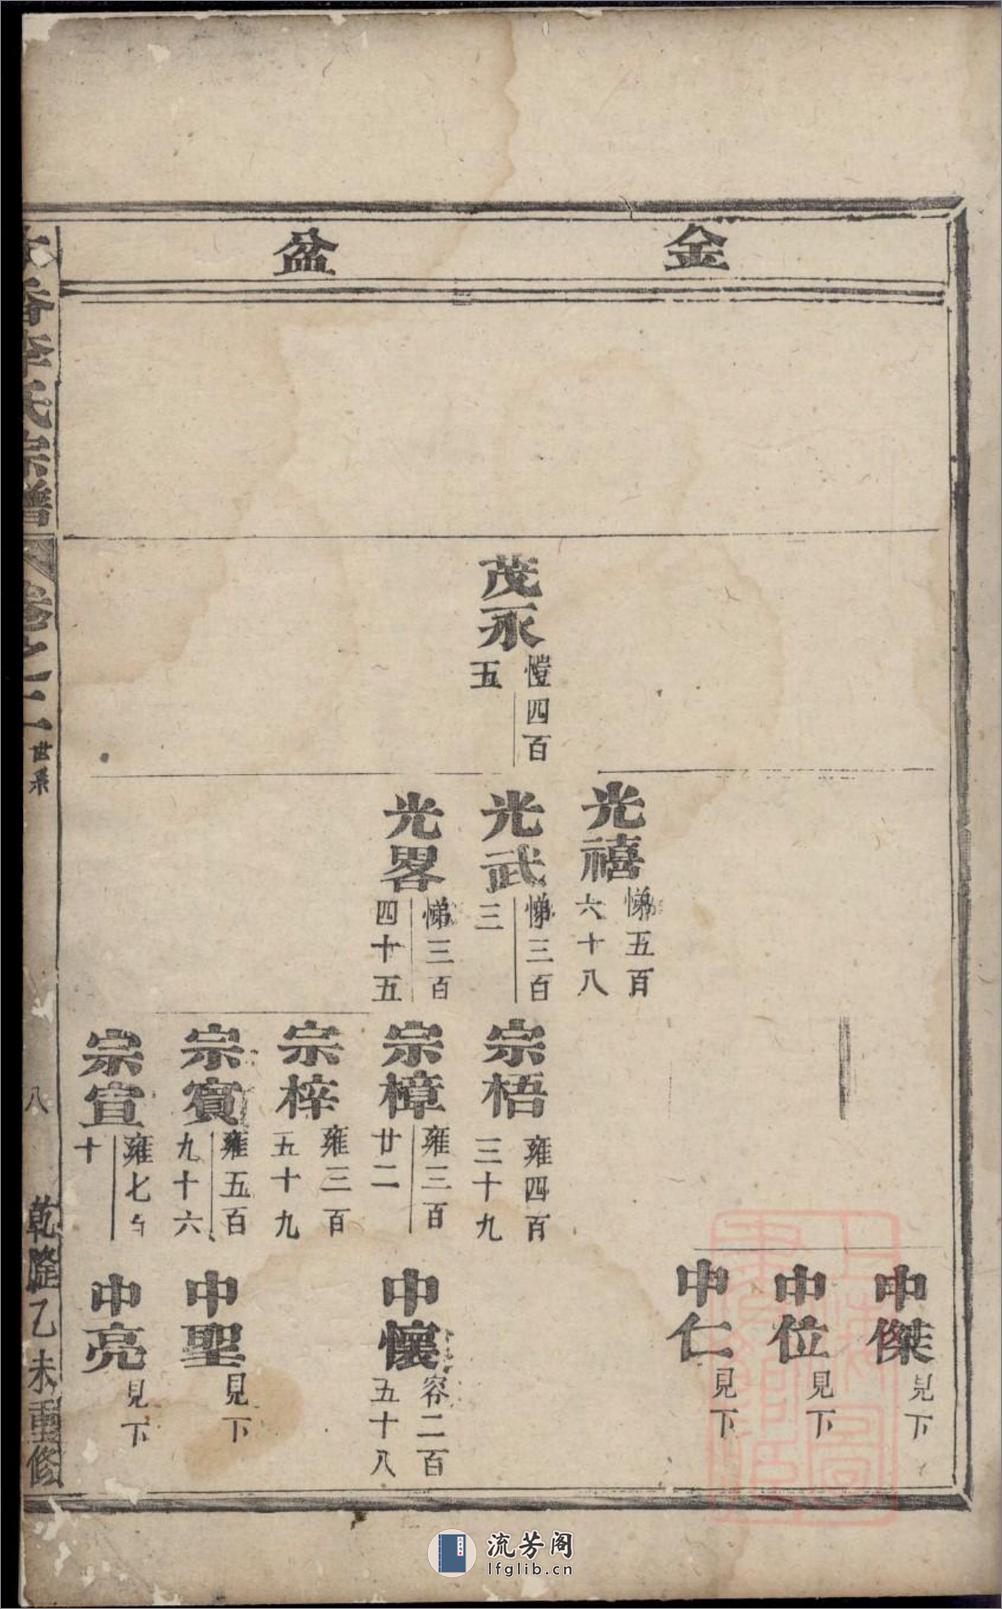 金盆
茂永 愷四百五
光禧 悌五百六十八
光武 悌三百三
光畧 悌三百四十五
宗梧 雍四百三十九
宗樟 雍三百廿二
宗梓 雍三百五十九
宗賓 雍五百九十六
宗宣 雍七百十
中傑 見下
中位 見下
中仁 見下
中懷 容二百五十八
中聖 見下
中亮 見下
李氏宗譜 卷之二 世系 八 乾隆乙未重修
流芳阁
lfglib.cn